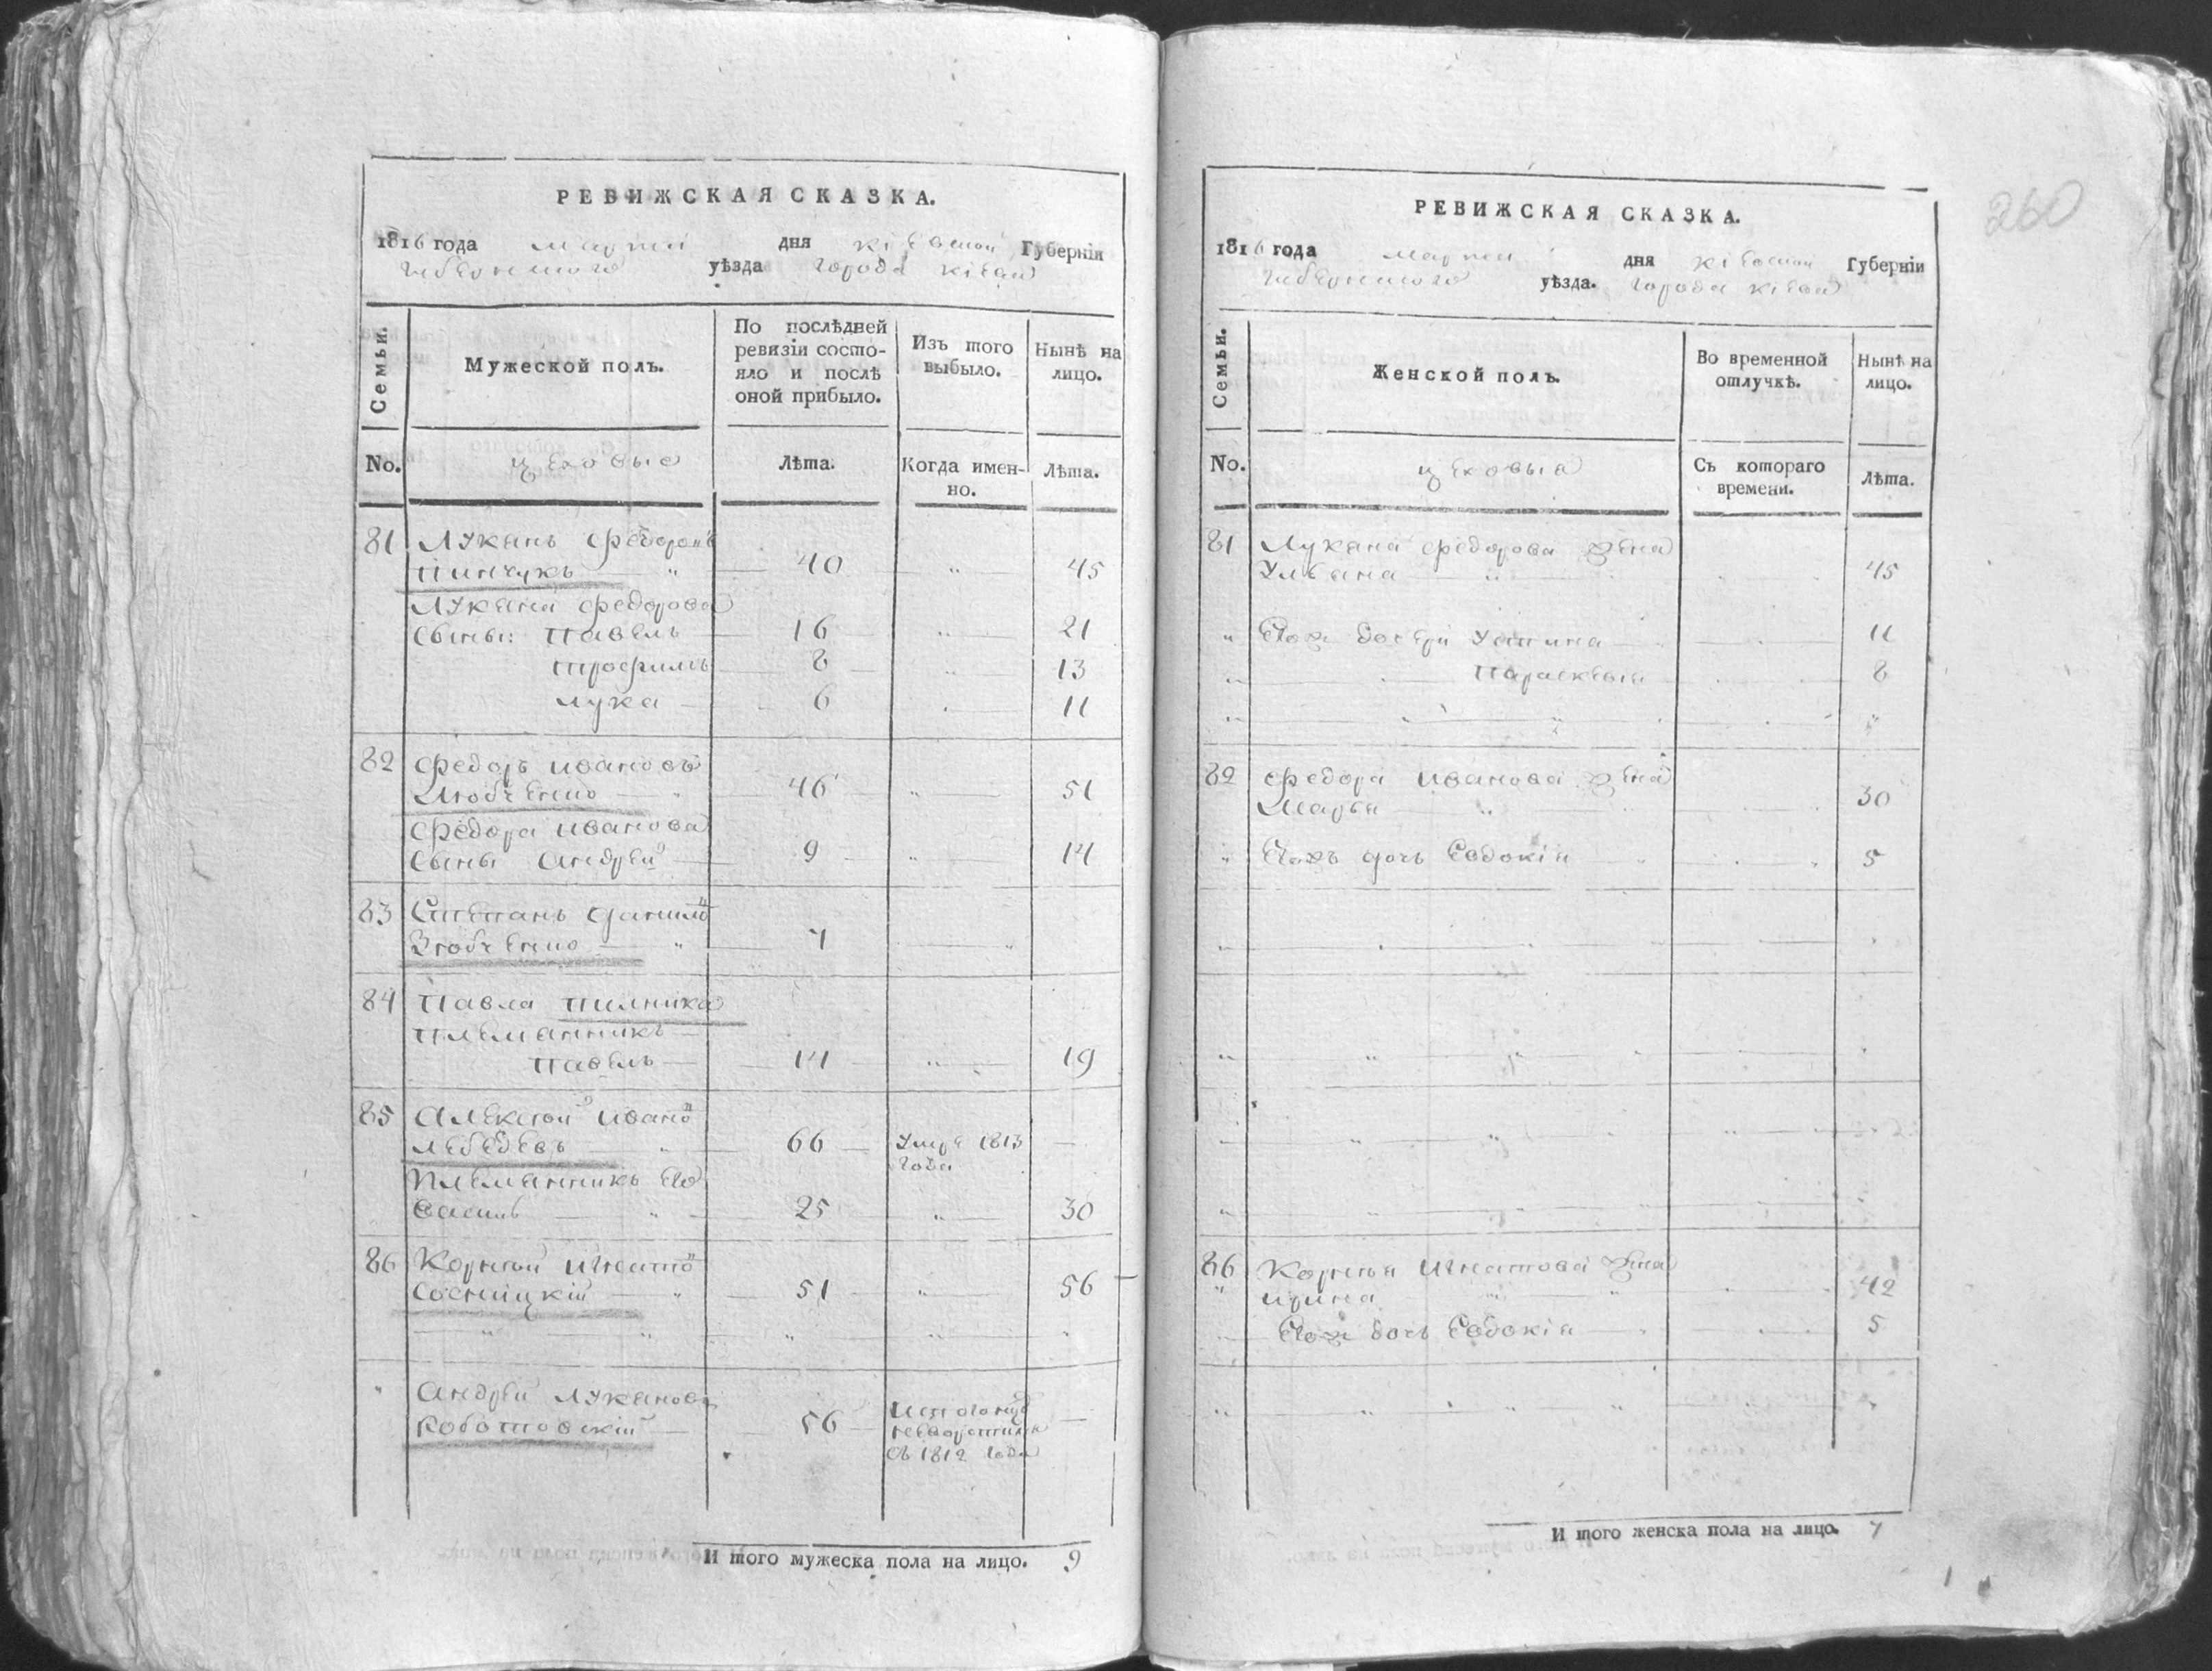 РЕВИЖСКАЯ СКАЗКА.
1816 года марта дня кіевской Губерніи
губернского уѣзда города кіева
Семьи.
Мужеской полъ.
По послѣдней ревизіи состо-
яло и послѣ оной прибыло.
Изъ того выбыло.
Нынѣ на лицо.
No.
цеховые
Лѣта.
Когда имен-
но.
Лѣта.
81 Лукянъ федоровъ
пинчукъ 40 45
Лукяна федорова
сыны: павелъ 16 21
трофимъ 8 13
лука 6 11
82 федоръ ивановъ
46 51
федора иванова
сынъ андрей 9 14
83 Степанъ данило
7
84 павла пилника
племянникъ
павелъ 14 19
85 алексей ивано
лебедевъ 66 умре 1813
года
племянникъ его
василь 25 30
86 Корней игнато
сосницкій 51 56
андрей лукяновъ
56
съ 1812 года
И того мужеска пола на лицо. 9
260
РЕВИЖСКАЯ СКАЗКА.
1816 года марта дня кіевской Губерніи
губернского уѣзда. города кіева
Семьи.
Женской полъ.
Во временной отлучкѣ.
Нынѣ на лицо.
No.
цеховыя
Съ котораго
времени.
Лѣта.
81 Лукяна федорова жена
Ульяна 45
Его дочери Устина 11
параскевия 8
82 федора иванова жена
Марья 30
Его дочь Евдокія 5
86 Корнея игнатова жена
ирина 42
Его дочь Евдокія 5
И того женска пола на лицо. 7